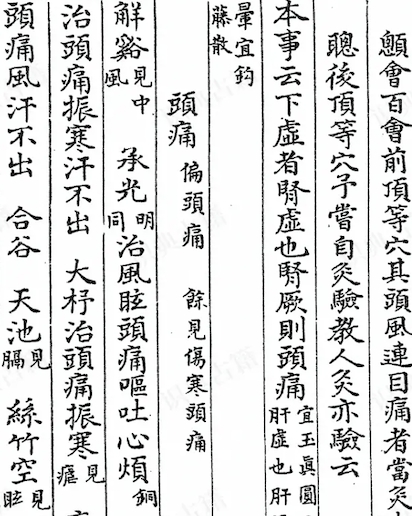 顖會百會前頂等穴其頭風連目痛者當灸
聰後頂等穴予嘗自灸驗教人灸亦驗云
本事云下虛者腎虛也腎厥則頭痛宜玉眞圓
肝虛也肝
暈宜鈎
藤散
頭痛 偏頭痛 餘見傷寒頭痛
解谿見中風 承光明同治風眩頭痛嘔吐心煩銅
治頭痛振寒汗不出 大杼治頭痛振寒見瘧
頭痛風汗不出 合谷 天池見膈 絲竹空見眩